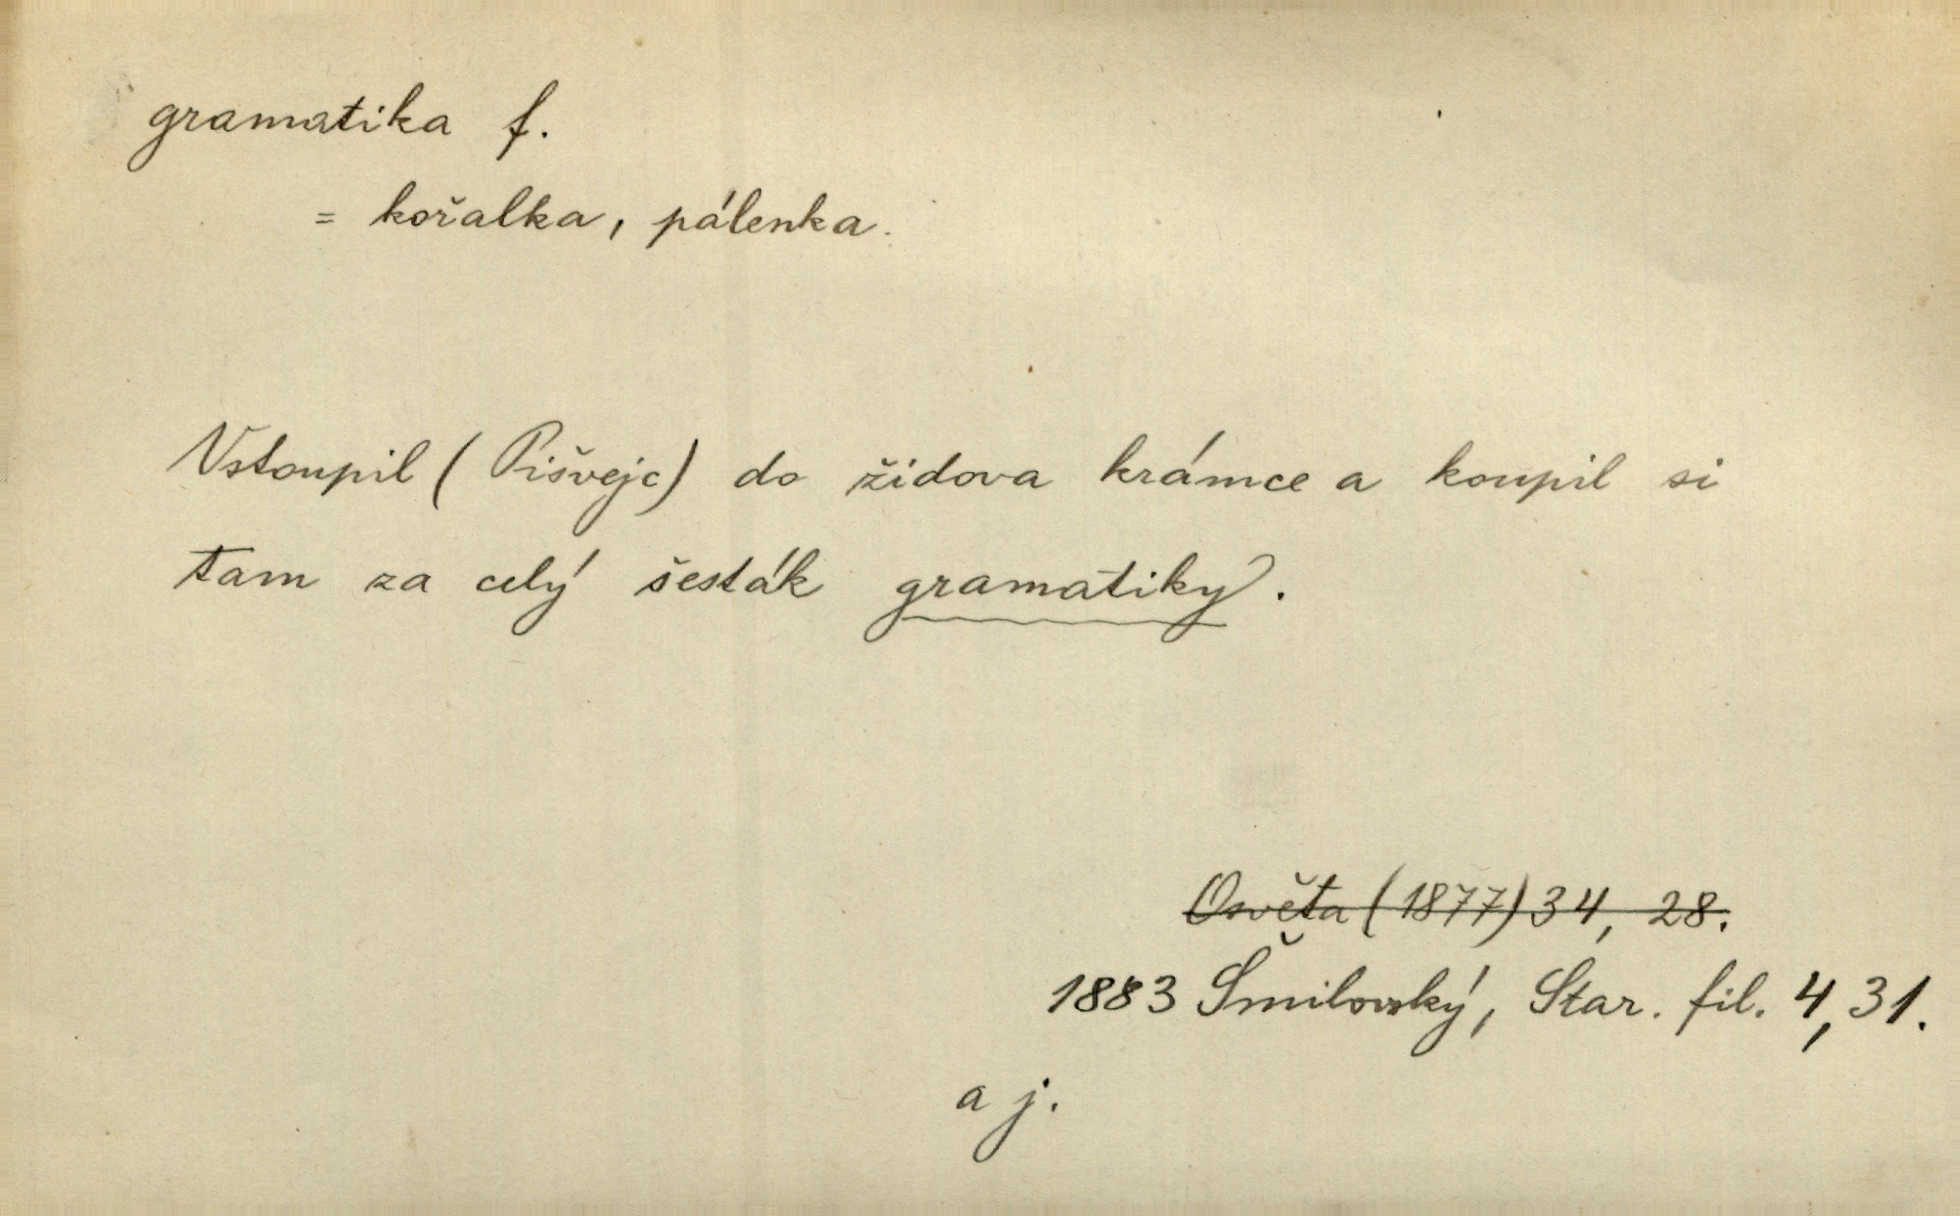 gramatika f.
= kořalka, pálenka.
Vstoupil (Pišvejc) do židova krámce a koupil si
tam za celý šesták gramatiky.
Osvěta (1877) 34, 28.
1883 Šmilovský, Star. fil. 4, 31.
a j.